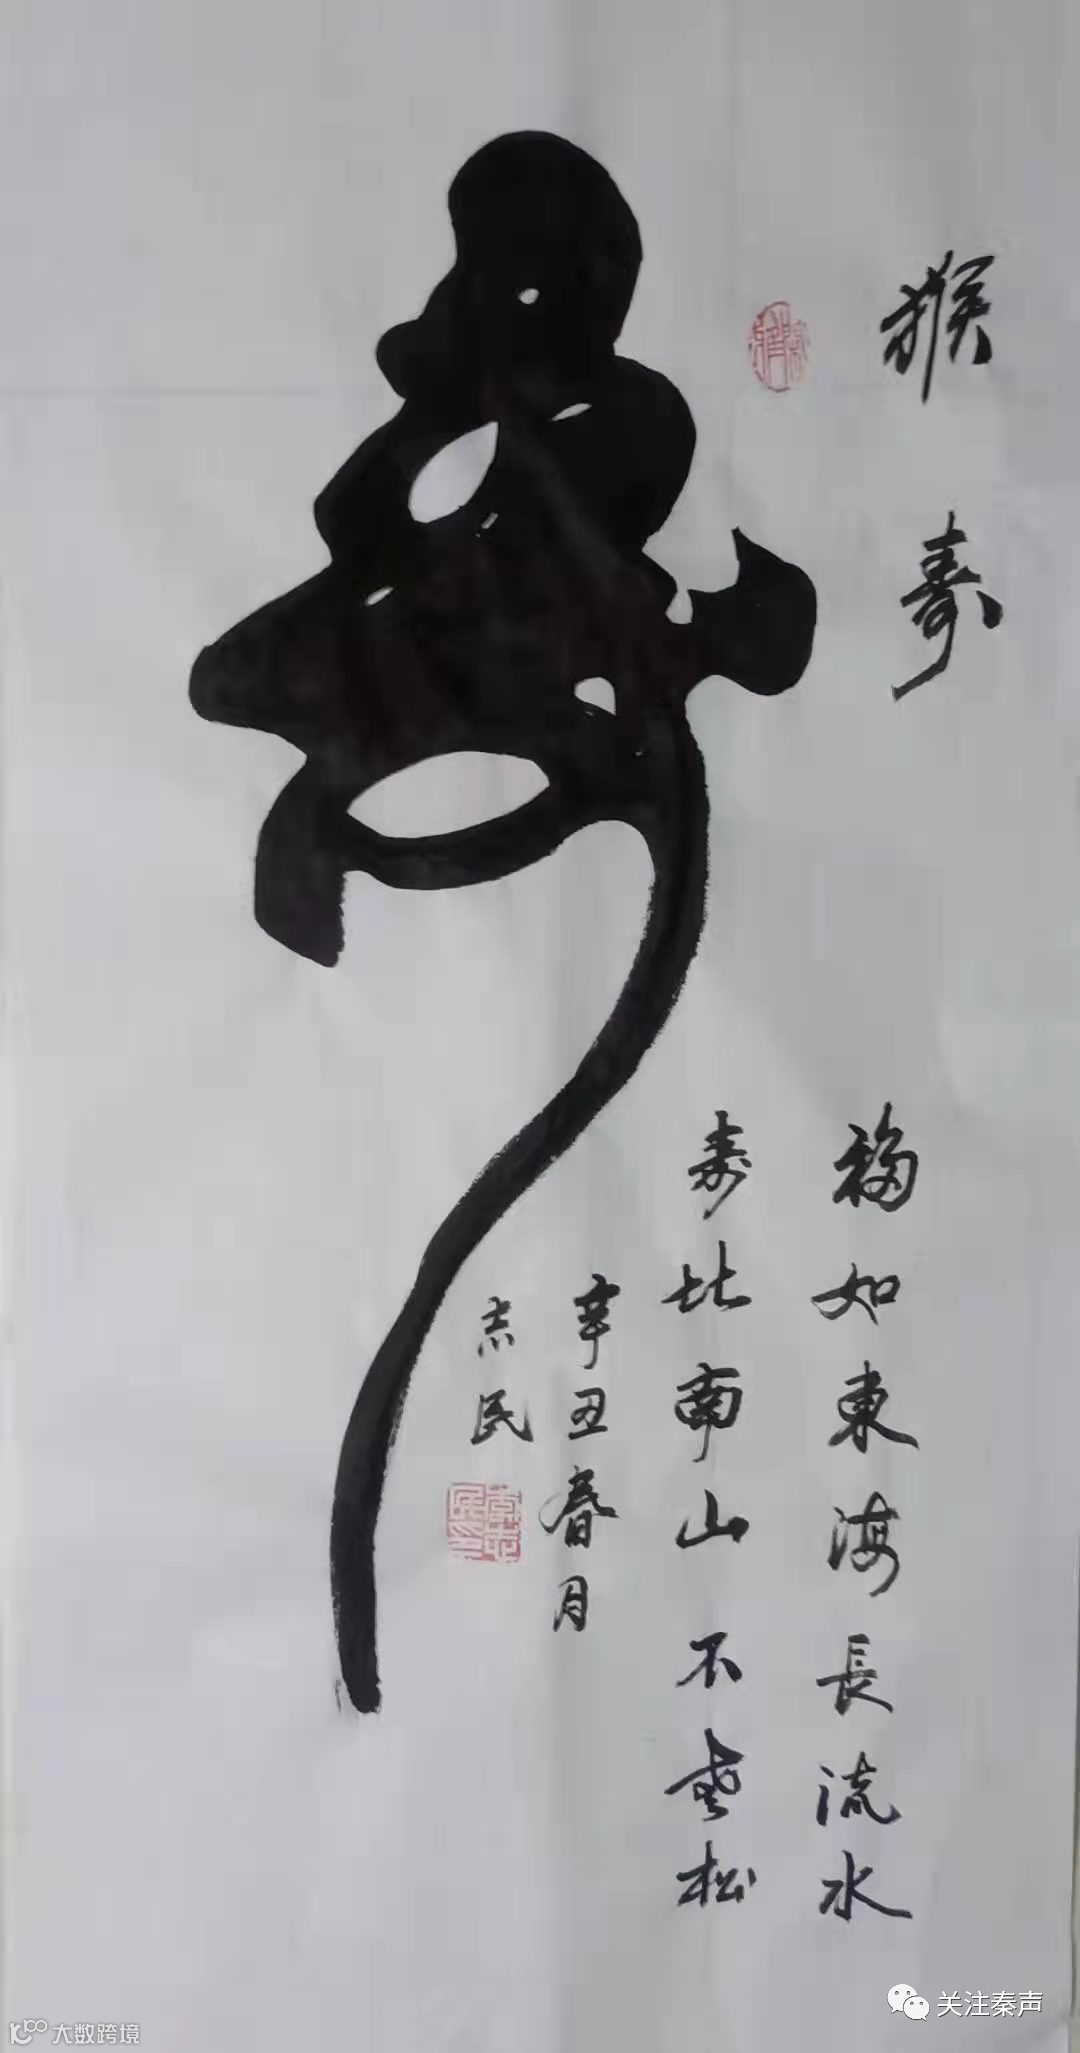 猴寿
福如東海長流水
寿比南山不老松
辛丑春月
志民
关注秦声
大数跨境